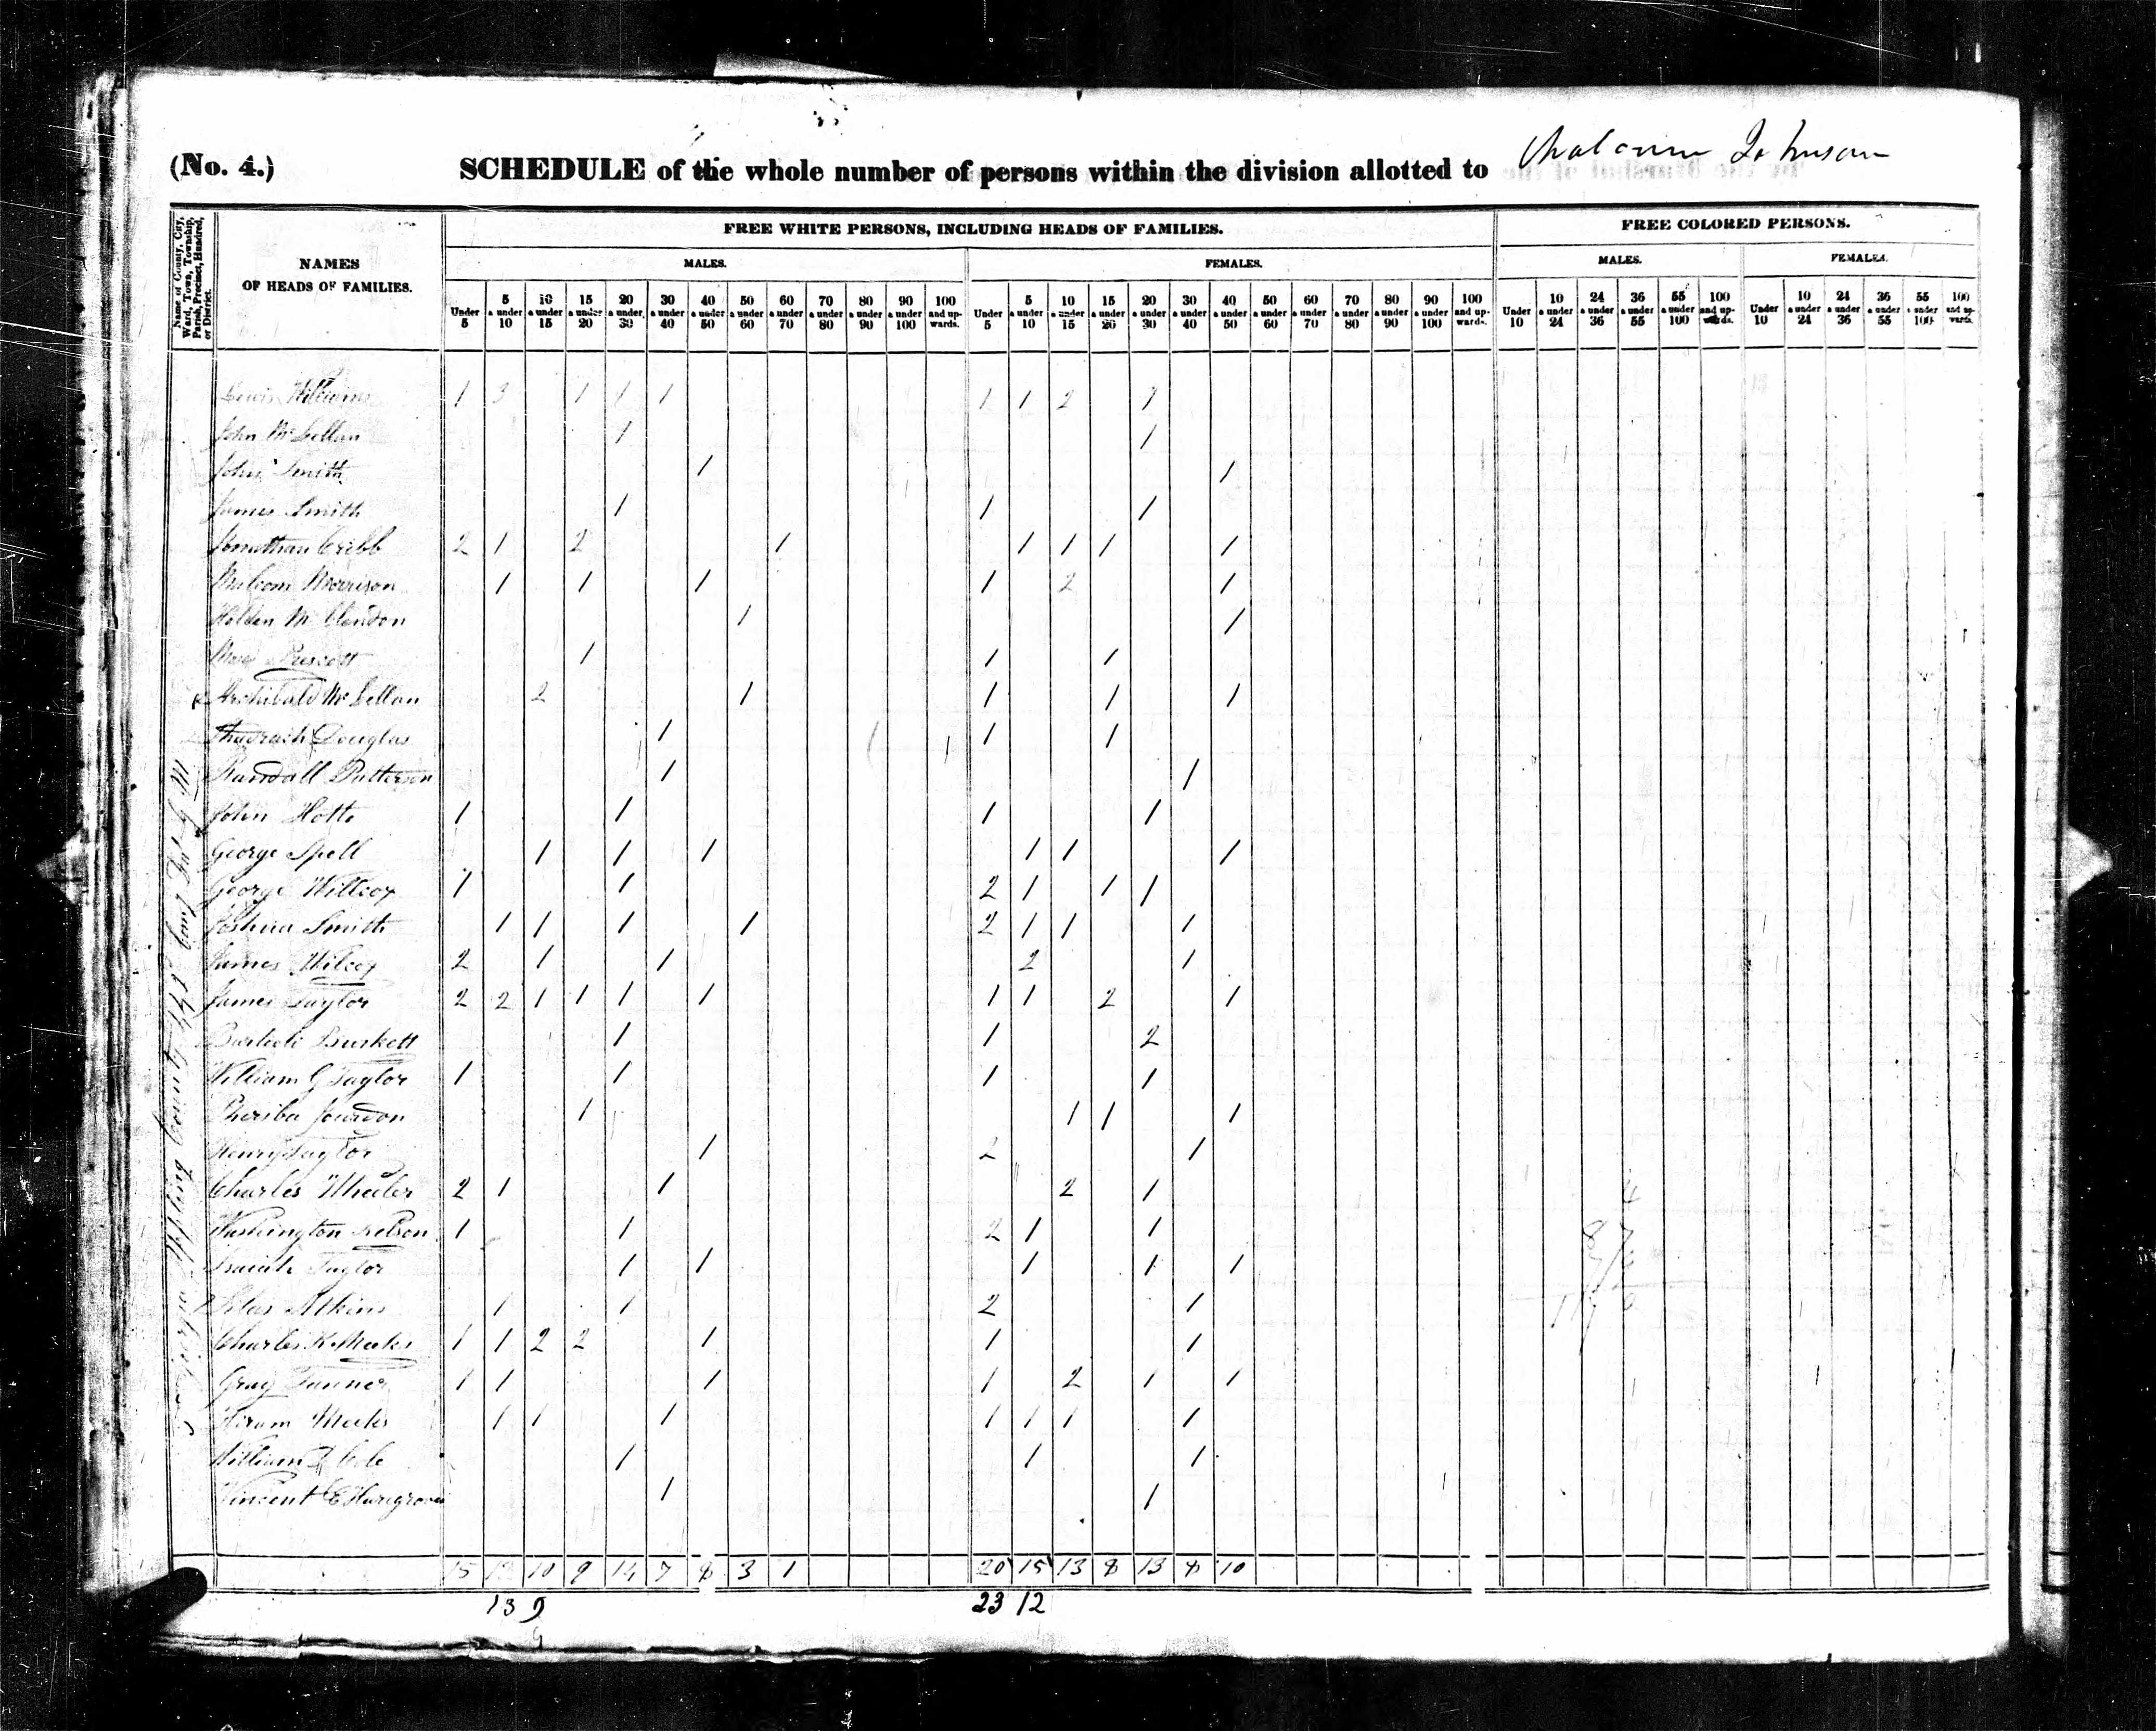 (No. 4.)
SCHEDULE of the whole number of persons within the division allotted to Malcom Johnson
Name of County, City, Ward, Town, Township, Parish, Precinct, Hundred, or District.
NAMES
OF HEADS OF FAMILIES.
FREE WHITE PERSONS, INCLUDING HEADS OF FAMILIES.
FREE COLORED PERSONS.
MALES. FEMALES. MALES. FEMALES.
Under 5 5 & under 10 10 & under 15 15 & under 20 20 & under 30 30 & under 40 40 & under 50 50 & under 60 60 & under 70 70 & under 80 80 & under 90 90 & under 100 100 and upwards. Under 5 5 & under 10 10 & under 15 15 & under 20 20 & under 30 30 & under 40 40 & under 50 50 & under 60 60 & under 70 70 & under 80 80 & under 90 90 & under 100 100 and upwards. Under 10 10 & under 24 24 & under 36 36 & under 55 55 & under 100 100 and upwards. Under 10 10 & under 24 24 & under 36 36 & under 55 55 & under 100 100 and upwards.
Lewis Williams 1 3 1 1 1 1 1 2 1
John McLellan 1 1
John Smith 1 1
James Smith 1 1 1
Jonathan Cribb 2 1 2 1 1 1 1 1
Malcom Morrison 1 1 1 1 2 1
Holden McClendon 1 1
Prescott 1 1 1
Archibald McLellan 2 1 1 1 1
Douglas 1 1 1
Randall Patterson 1 1
John Hotto 1 1 1 1
George Spell 1 1 1 1 1 1
George Willcox 1 1 2 1 1 1
Joshua Smith 1 1 1 1 2 1 1 1
James Wilcox 2 1 1 2 1
James Taylor 2 2 1 1 1 1 1 1 2 1
Burkett 1 1 2
William G Taylor 1 1 1 1
Pheriba Jourdon 1 1 1 1
Henry Taylor 1 2 1
Charles Wheeler 2 1 1 2 1
Washington Nelson 1 1 2 1 1
Isaiah Taylor 1 1 1 1 1
Silas Atkins 1 1 2 1
Charles K Meeks 1 1 2 2 1 1 1
Gray Tanner 1 1 1 1 2 1 1
Hiram Meeks 1 1 1 1 1 1 1
William Cole 1 1 1
Vincent E Hargroves 1 1
15 12 10 9 14 7 8 3 1 20 15 13 8 13 8 10
13 9 23 12